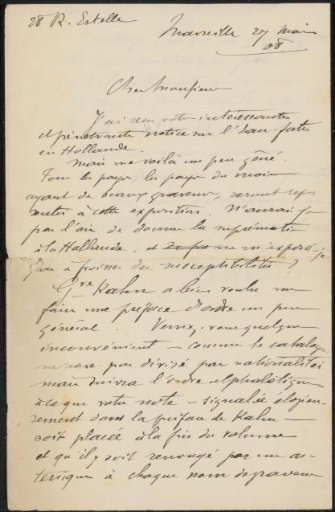 28 R. Estelle
Marseille 27 Mai
08
Cher Monsieur
J'ai reçu votre intéressante
et pénétrante notice sur l'eau-forte
en Hollande.
Mais me voilà un peu gêné.
Tous les pays, les pays du moins
ayant de beaux graveurs, seront repré
sentés à cette exposition. N'aurai-je
pas l'air de donner la suprématie
à la Hollande, et ne m'exposé-je
pas à froisser des susceptibilités ?
Gve Kahn a bien voulu me
faire une préface d'ordre un peu
général. Verriez-vous quelque
inconvénient - comme le catalogue
ne sera pas divisé par nationalités
mais suivra l'ordre alphabétique
à ce que votre note - signalée élogieu-
sement dans la préface de Kahn -
soit placée à la fin du volume
et qu'il y soit renvoyé par un as-
térisque à chaque nom de graveur